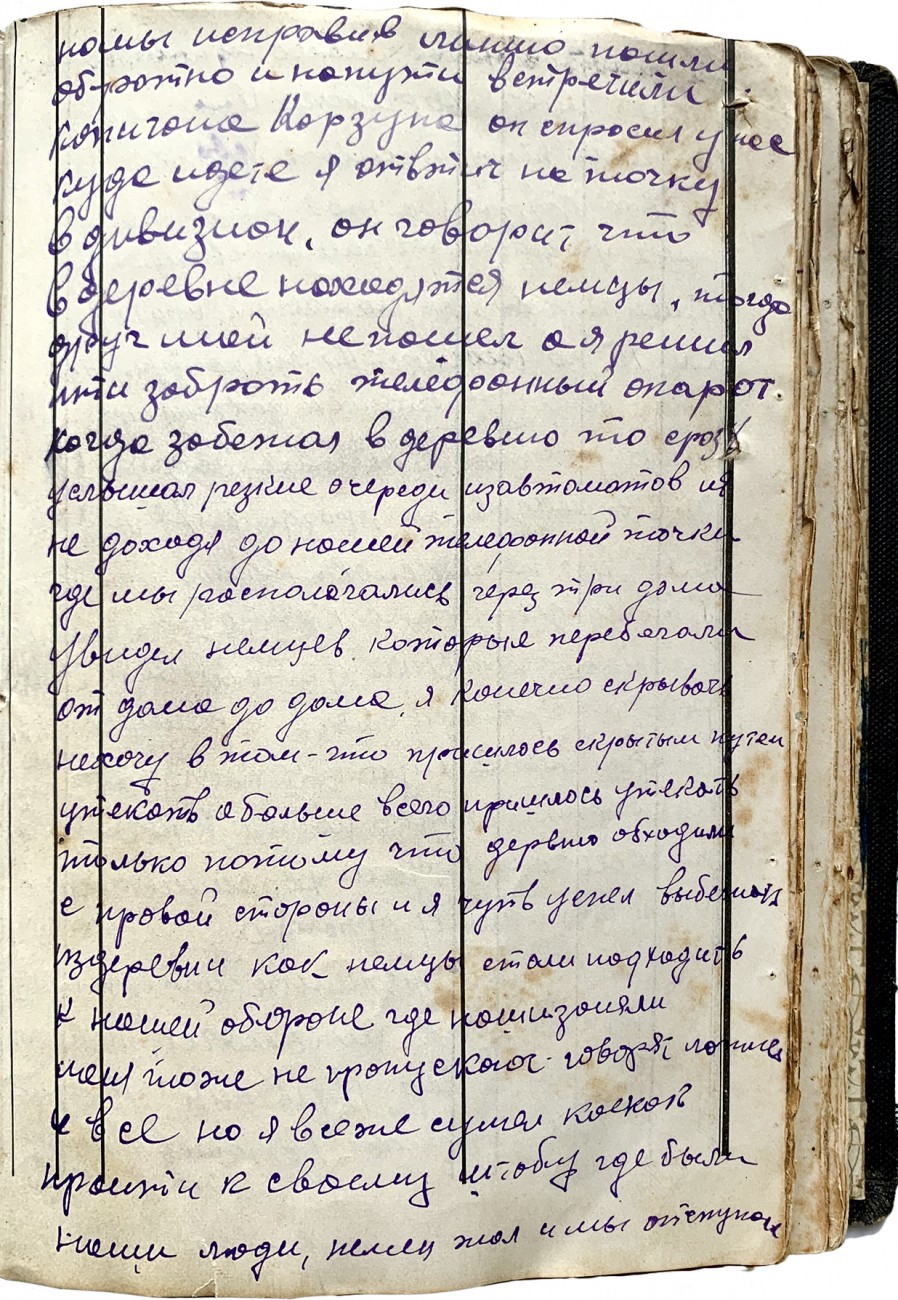 но мы исправив линию пошли
обратно и напути встретили
капитана Карзуна он спросил у нас
куда идете я ответил на точку
в дивизион, он говорит что
в деревне находятся немцы, тогда
друг мой непошел а я решил
итти забрать телефонный апарат
когда забежал в деревню то сразу
услышал резкие очереди изавтоматов и
не доходя до нашей телефонной точки
где мы располагались через три дома
увидел немцев которые перебегали
от дома до дома, я конечно скрывать
нехочу в том-что пришлось скрытым путем
утекать а больше всего пришлось утекать
только потому что дервню обходили
с правой стороны и я чуть успел выбежать
издеревни как немцы стали подходить
к нашей обороне где наши заняли
меня тоже не пропускают говорят
и всё но я всёже сумел каскать
пройти к своему штабу где были
наши люди, немец жал и мы отступали